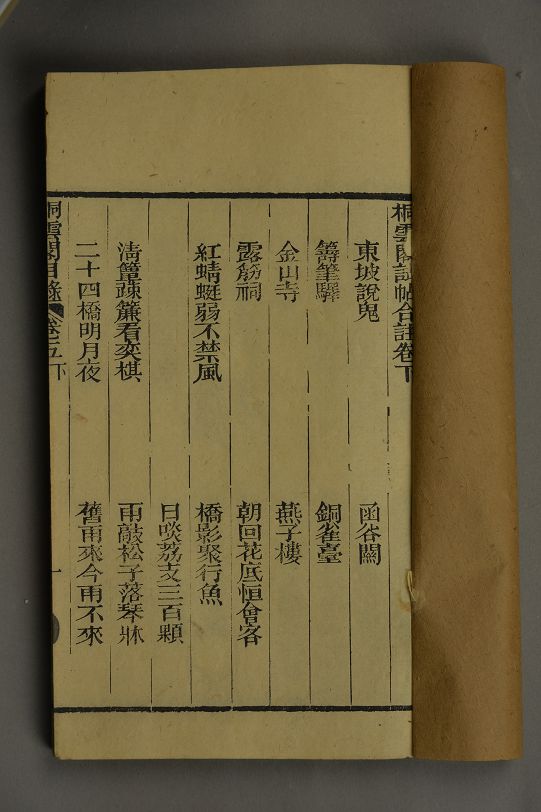 桐雲閣試帖合註卷下
東坡說鬼
函谷關
籌筆驛
銅雀臺
金山寺
燕子樓
露筋祠
朝回花底恒會客
紅蜻蜓弱不禁風
橋影聚行魚
日啖荔支三百顆
清簟疎簾看奕棋
雨敲松子落琴牀
二十四橋明月夜
舊雨來今雨不來
桐雲閣目錄
卷五下
一